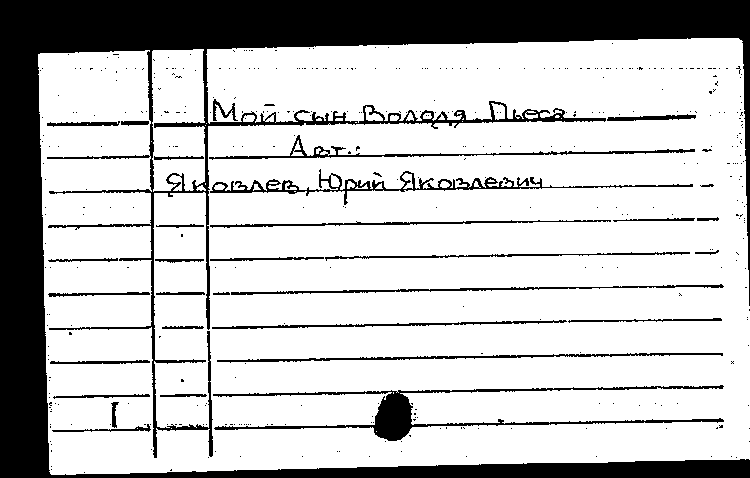 Мой сын Володя. Пьеса.
Авт.:
Яковлев, Юрий Яковлевич.
I